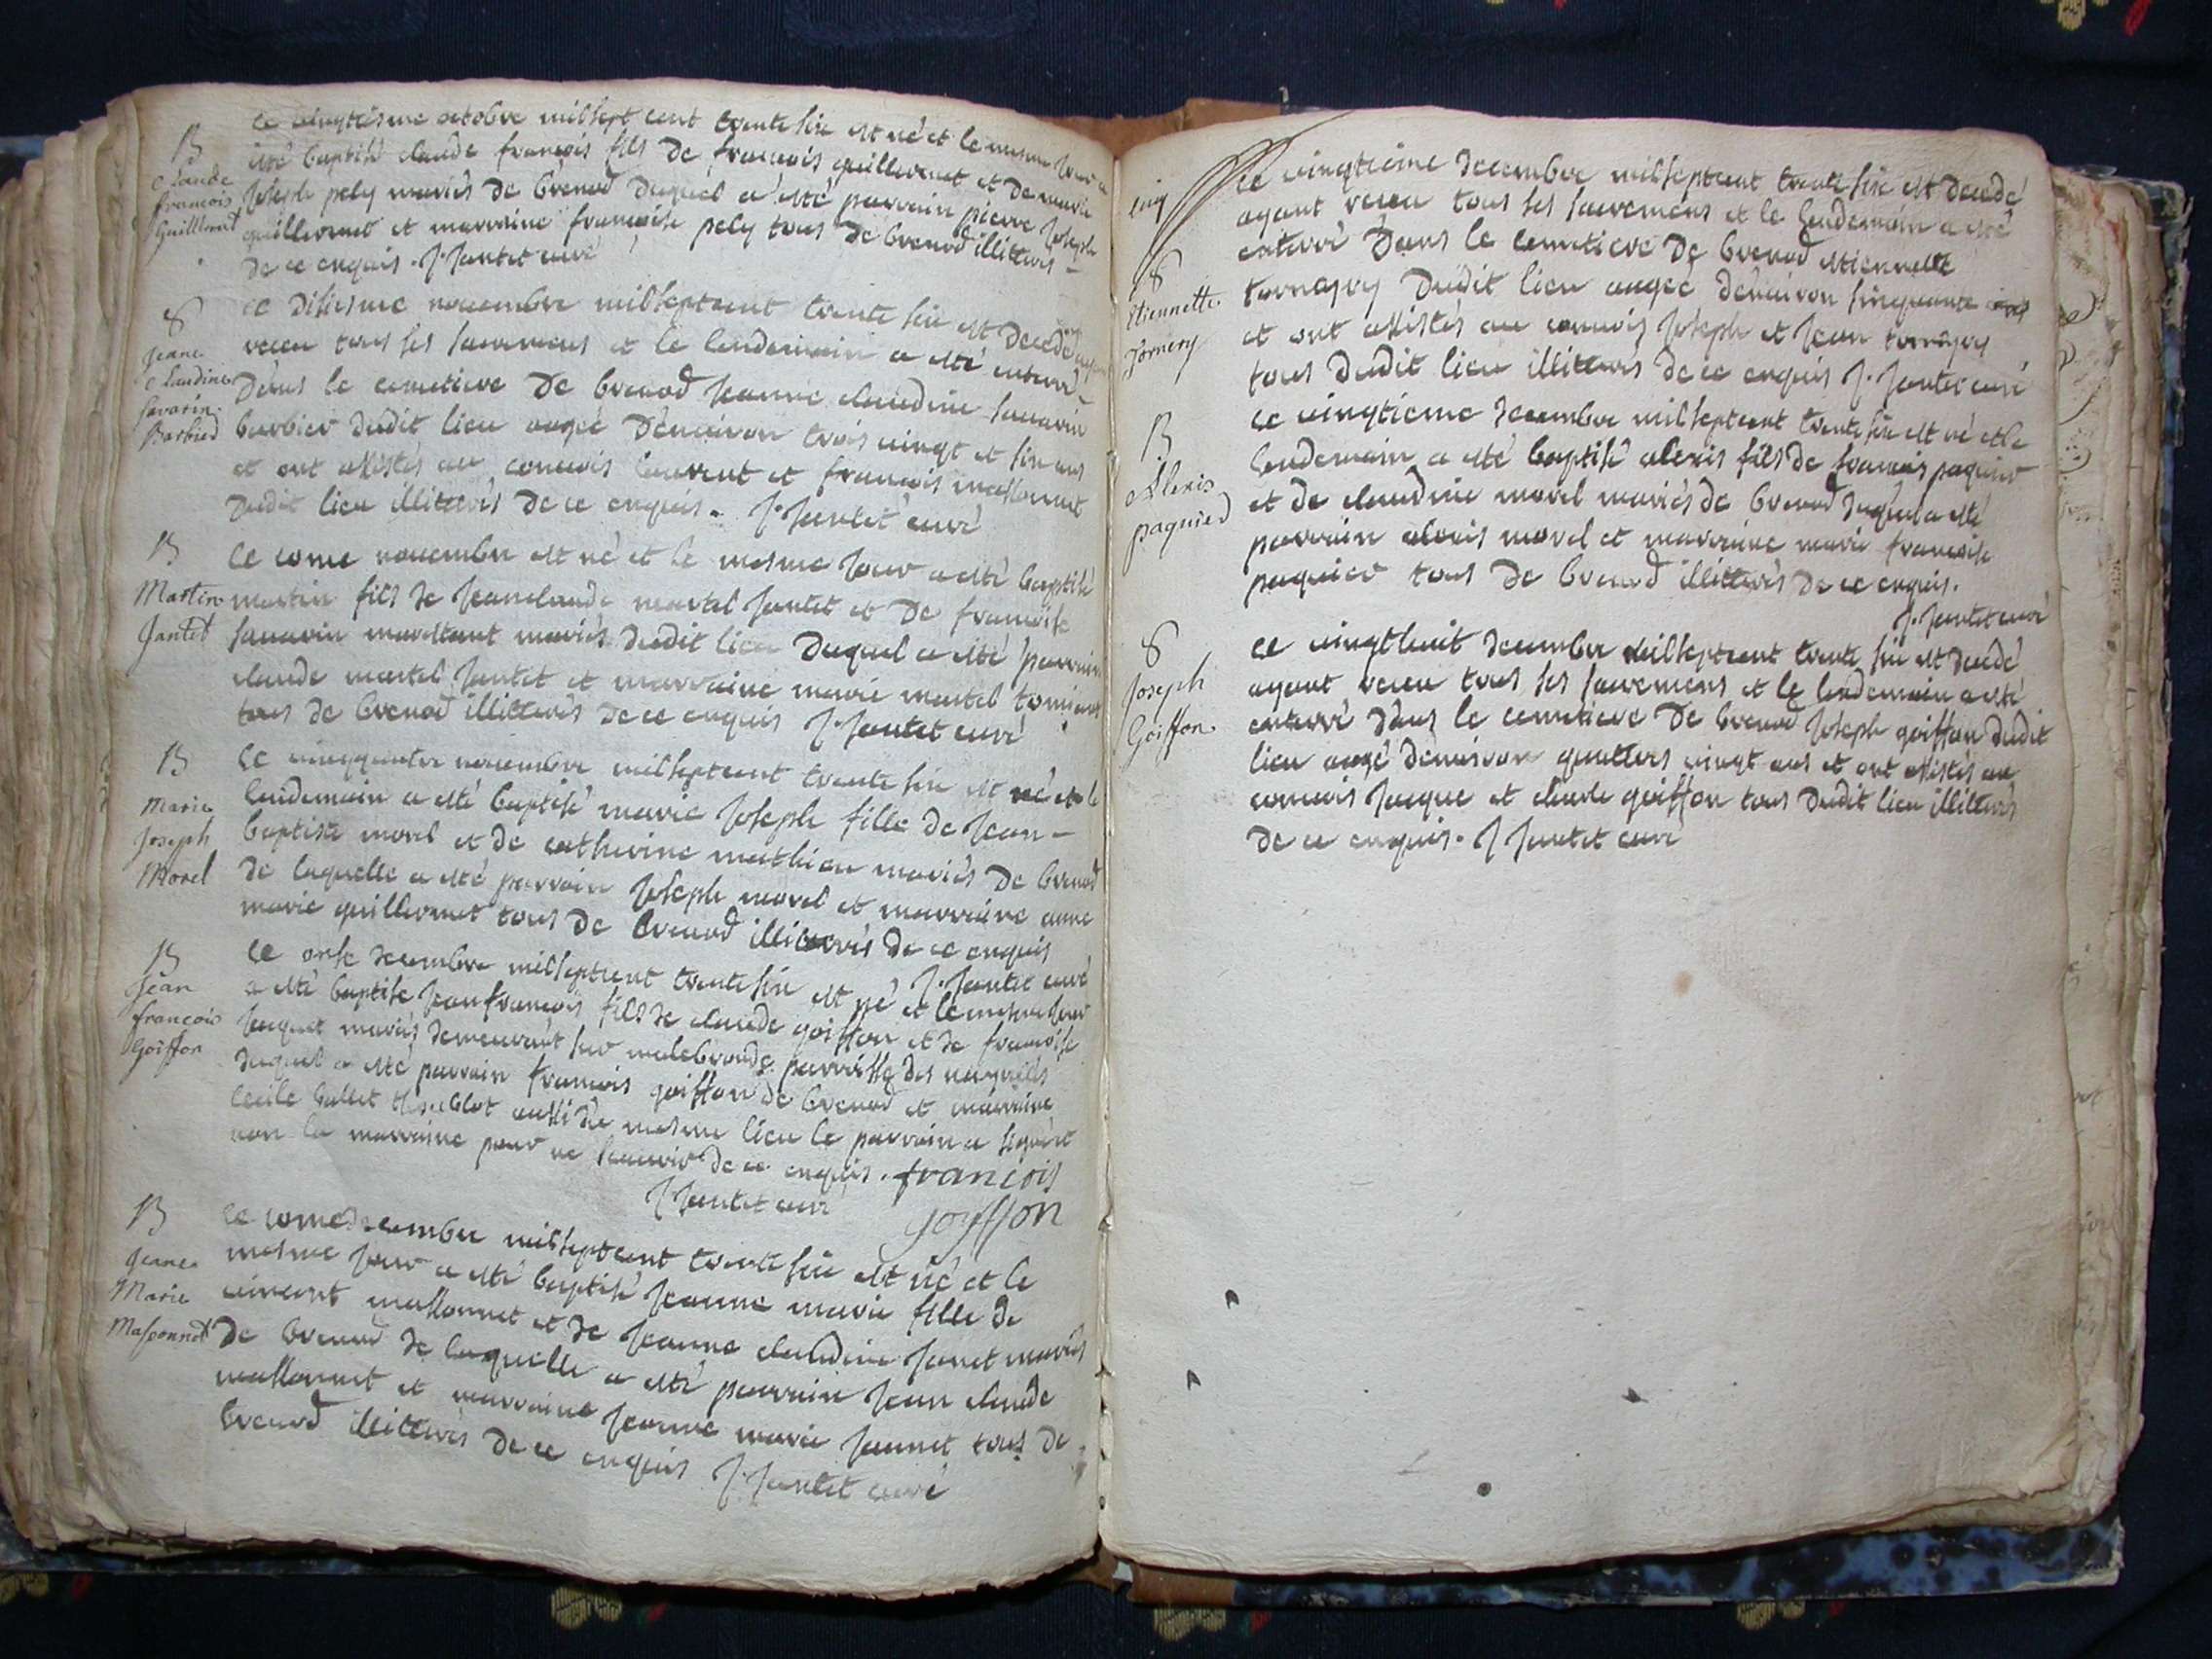 B
Claude
francois
Guillermet
ce vingtiesme octobre milsept cent trente six est né et le mesme jour a
esté baptisé claude francois fils de francois guillermet et de marie
joseph pely mariés de brenod duquel a esté parrain pierre joseph
guillermet et marraine francoise pely tous de brenod illitterés
de ce enquis. J. Jantet curé
8
Jeane
Claudine
Savarin
Barbied
ce disiesme novembre milseptcent trente six est decedé ayant
receu tous ses sacremens et le lendemain a esté enterré
dans le cemetiere de brenod jeanne claudine sauarin
barbier dudit lieu aagée denuiron trois vingt et six ans
et ont assistés au conuois laurent et francois massonnet
dudit lieu illitterés de ce enquis. J. Jantet curé
B
Martin
Jantet
le vonse novembre est né et le mesme jour a esté baptisé
martin fils de jeanclaude martel jantet et de francoise
sauarin marchant mariés dudit lieu duquel a esté parrain
claude martel jantet et marraine marie martel
tous de brenod illitterés de ce enquis J. Jantet curé
B
Marie
Joseph
Morel
le vingquatre novembre milseptcent trente six est né et le
lendemain a esté baptisé marie joseph fille de jean-
baptiste morel et de catherine mathieu mariés de brenod
de laquelle a esté parrain joseph morel et marraine anne
marie guillermet tous de brenod illitterés de ce enquis
J. Jantet curé
B
Jean
francois
Goiffon
le onse decembre milseptcent trente six est né et le mesme jour
a esté baptisé jeanfrancois fils de claude goiffon et de francoise
jacquet mariés demeurant sur malebronde parroisse des neyrolles
duquel a esté parrain francois goiffon de brenod et marraine
cecile ballet aussi du mesme lieu le parrain a signé et
non la marraine pour ne scauoir de ce enquis. francois
J Jantet curé goyffon
B
Jeane
Marie
Massonnet
ce vonse decembre milseptcent trente six est né et le
mesme jour a esté baptisé jeanne marie fille de
vincent massonnet et de jeanne claudine janet mariés
de brenod de laquelle a esté parrain jean claude
massonnet et marraine jeanne marie jannet tous de
brenod illitterés de ce enquis J. Jantet curé
8
Etiennette
Tornery
Le vingtieme decembre milseptcent trente six est decedé
ayant receu tous ses sacremens et le lendemain a esté
enterré dans le cemetiere de brenod etiennette
tornagry dudit lieu aagée denuiron sinquante ans
et ont assistés au conuois joseph et jean tornagry
tous dudit lieu illitterés de ce enquis J. Jantet curé
B
Alexis
paquied
ce vingtieme decembre milseptcent trente six est né et le
lendemain a esté baptisé alexis fils de francois paquier
et de claudine morel mariés de brenod duquel a esté
parrain alexis morel et marraine marie francoise
paquier tous de brenod illitterés de ce enquis.
J. Jantet curé
8
Joseph
Goiffon
ce vingthuit decembre milseptcent trente six est decedé
ayant receu tous ses sacremens et le lendemain a esté
enterré dans le cemetiere de brenod joseph goiffon dudit
lieu aagé denuiron quattres vingt ans et ont assistés au
conuois jacque et claude goiffon tous dudit lieu illitterés
de ce enquis. J Jantet curé